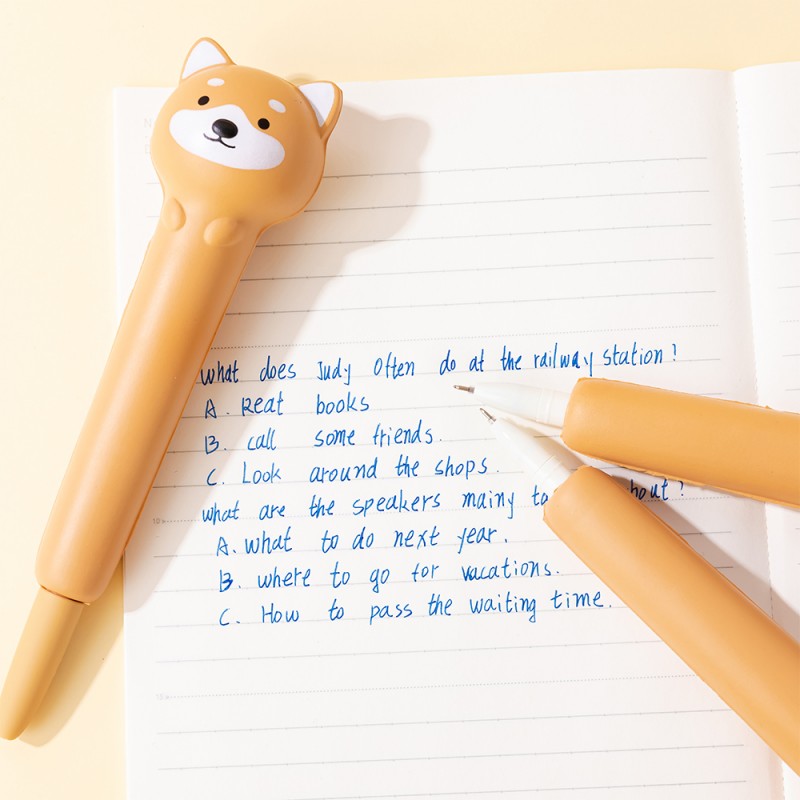 what does Judy Often do at the railway station?
A. Reat books
B. call some friends.
C. Look around the shops.
what are the speakers mainy
A. what to do next year.
B. where to go for vacations.
C. How to pass the waiting time.